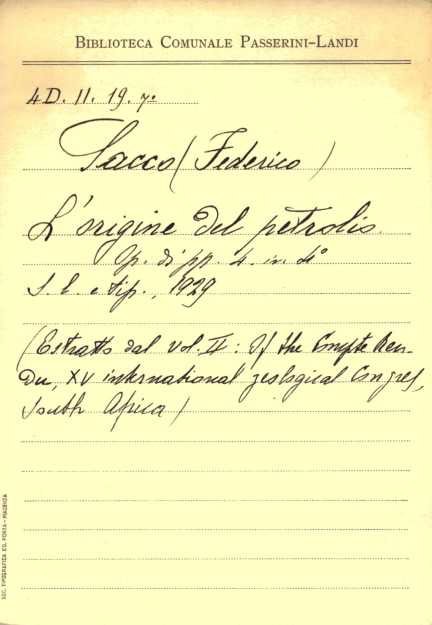 BIBLIOTECA COMUNALE PASSERINI-LANDI
4D. II. 19. 7°
Sacco (Federico)
L'origine del petrolio.
Op. di pp. 4. in 4°
S. l. e tip., 1929
(Estratto dal vol. II: Of the Compte Ren-
du, XV international geological Congres,
South Africa)
SOC. TIPOGRAFICA ED. PORTA - PIACENZA